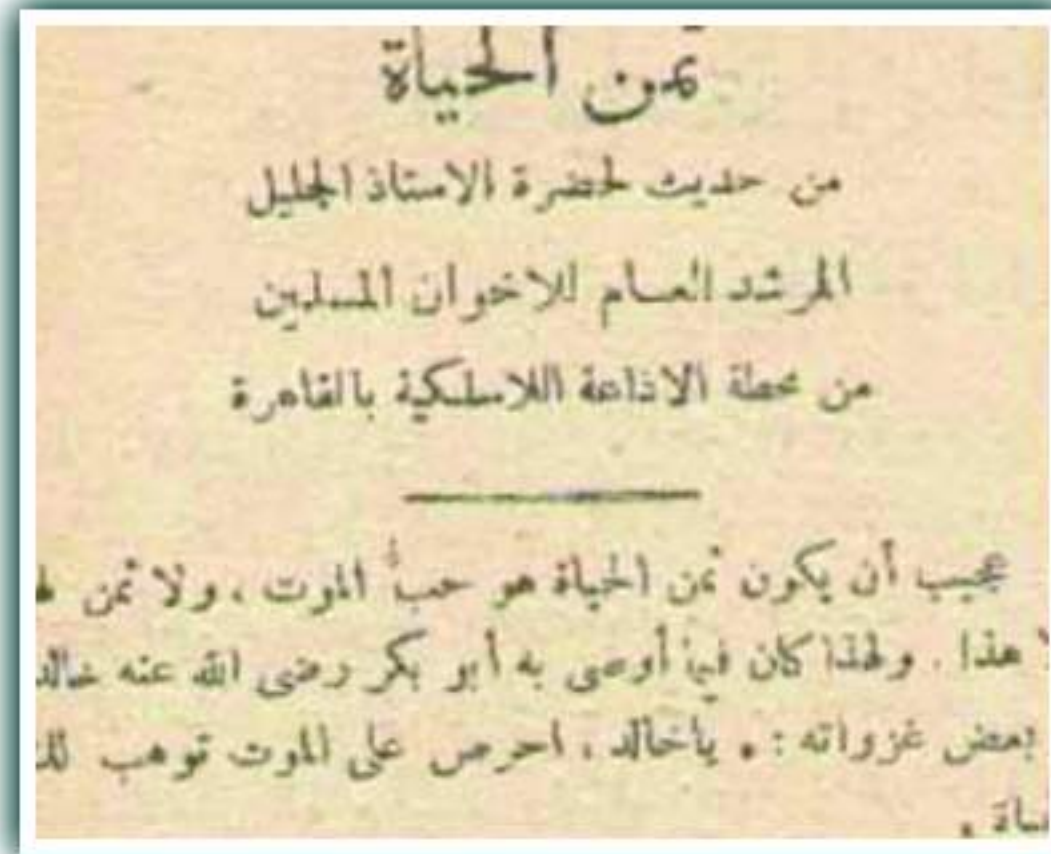 ثمن الحياة
من حديث لحضرة الاستاذ الجليل
المرشد العام للاخوان المسلمين
من محطة الاذاعة اللاسلكية بالقاهرة
عجيب أن يكون ثمن الحياة هو حبُّ الموت ، ولا ثمن
هذا . ولهذا كان فيما أوصى به أبو بكر رضى الله عنه خالد
بعض غزواته : « ياخالد ، احرص على الموت توهب